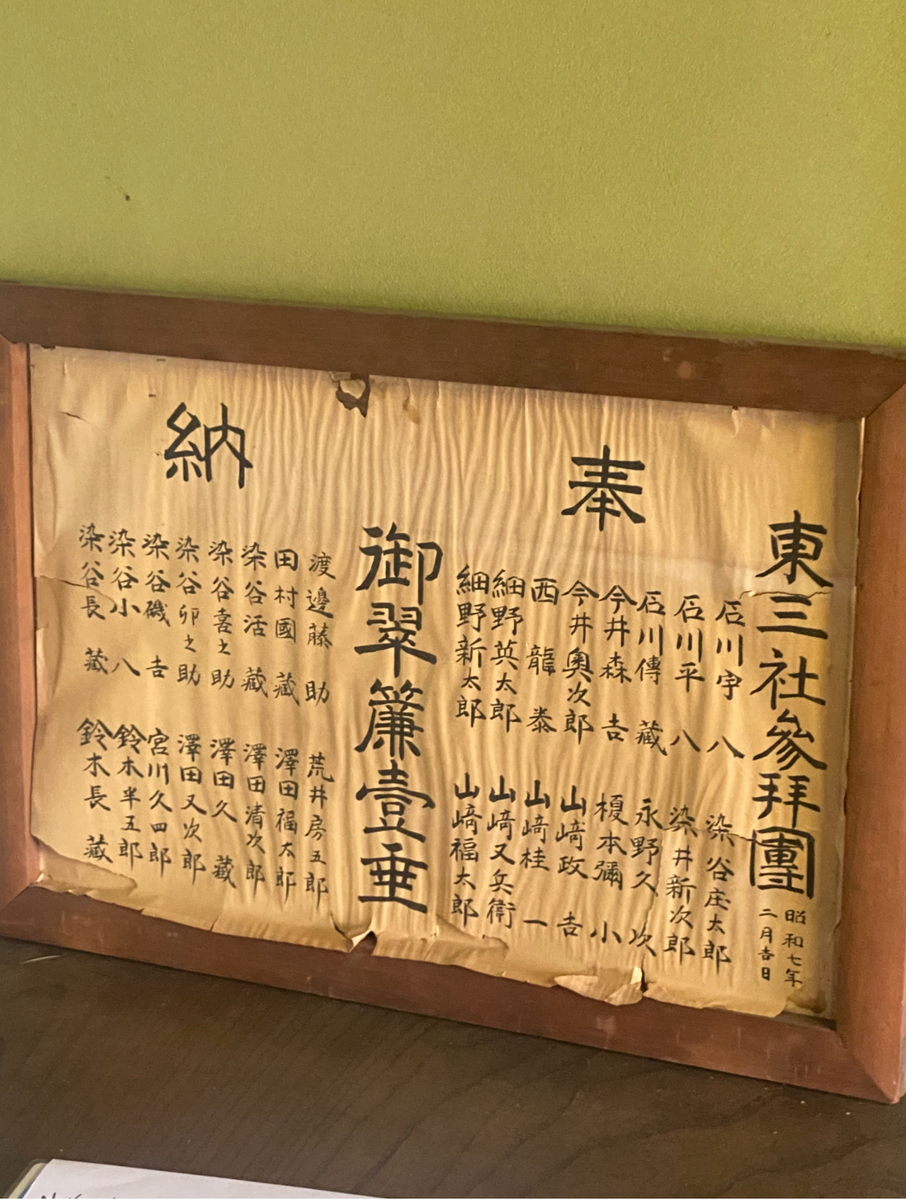 東三社參拜團
昭和七年
二月吉日
奉
石川宇八
石川平八
石川傳藏
今井森吉
今井奧次郎
西龍泰
細野英太郎
細野新太郎
染谷庄太郎
染井新次郎
永野久次
榎本彌小
山﨑政吉
山﨑桂一
山﨑又兵衛
山﨑福太郎
御翠簾壹垂
納
渡邊藤助
田村國藏
染谷活藏
染谷喜之助
染谷卯之助
染谷磯吉
染谷小八
染谷長藏
荒井房五郎
澤田福太郎
澤田清次郎
澤田久藏
澤田又次郎
宮川久四郎
鈴木半五郎
鈴木長藏